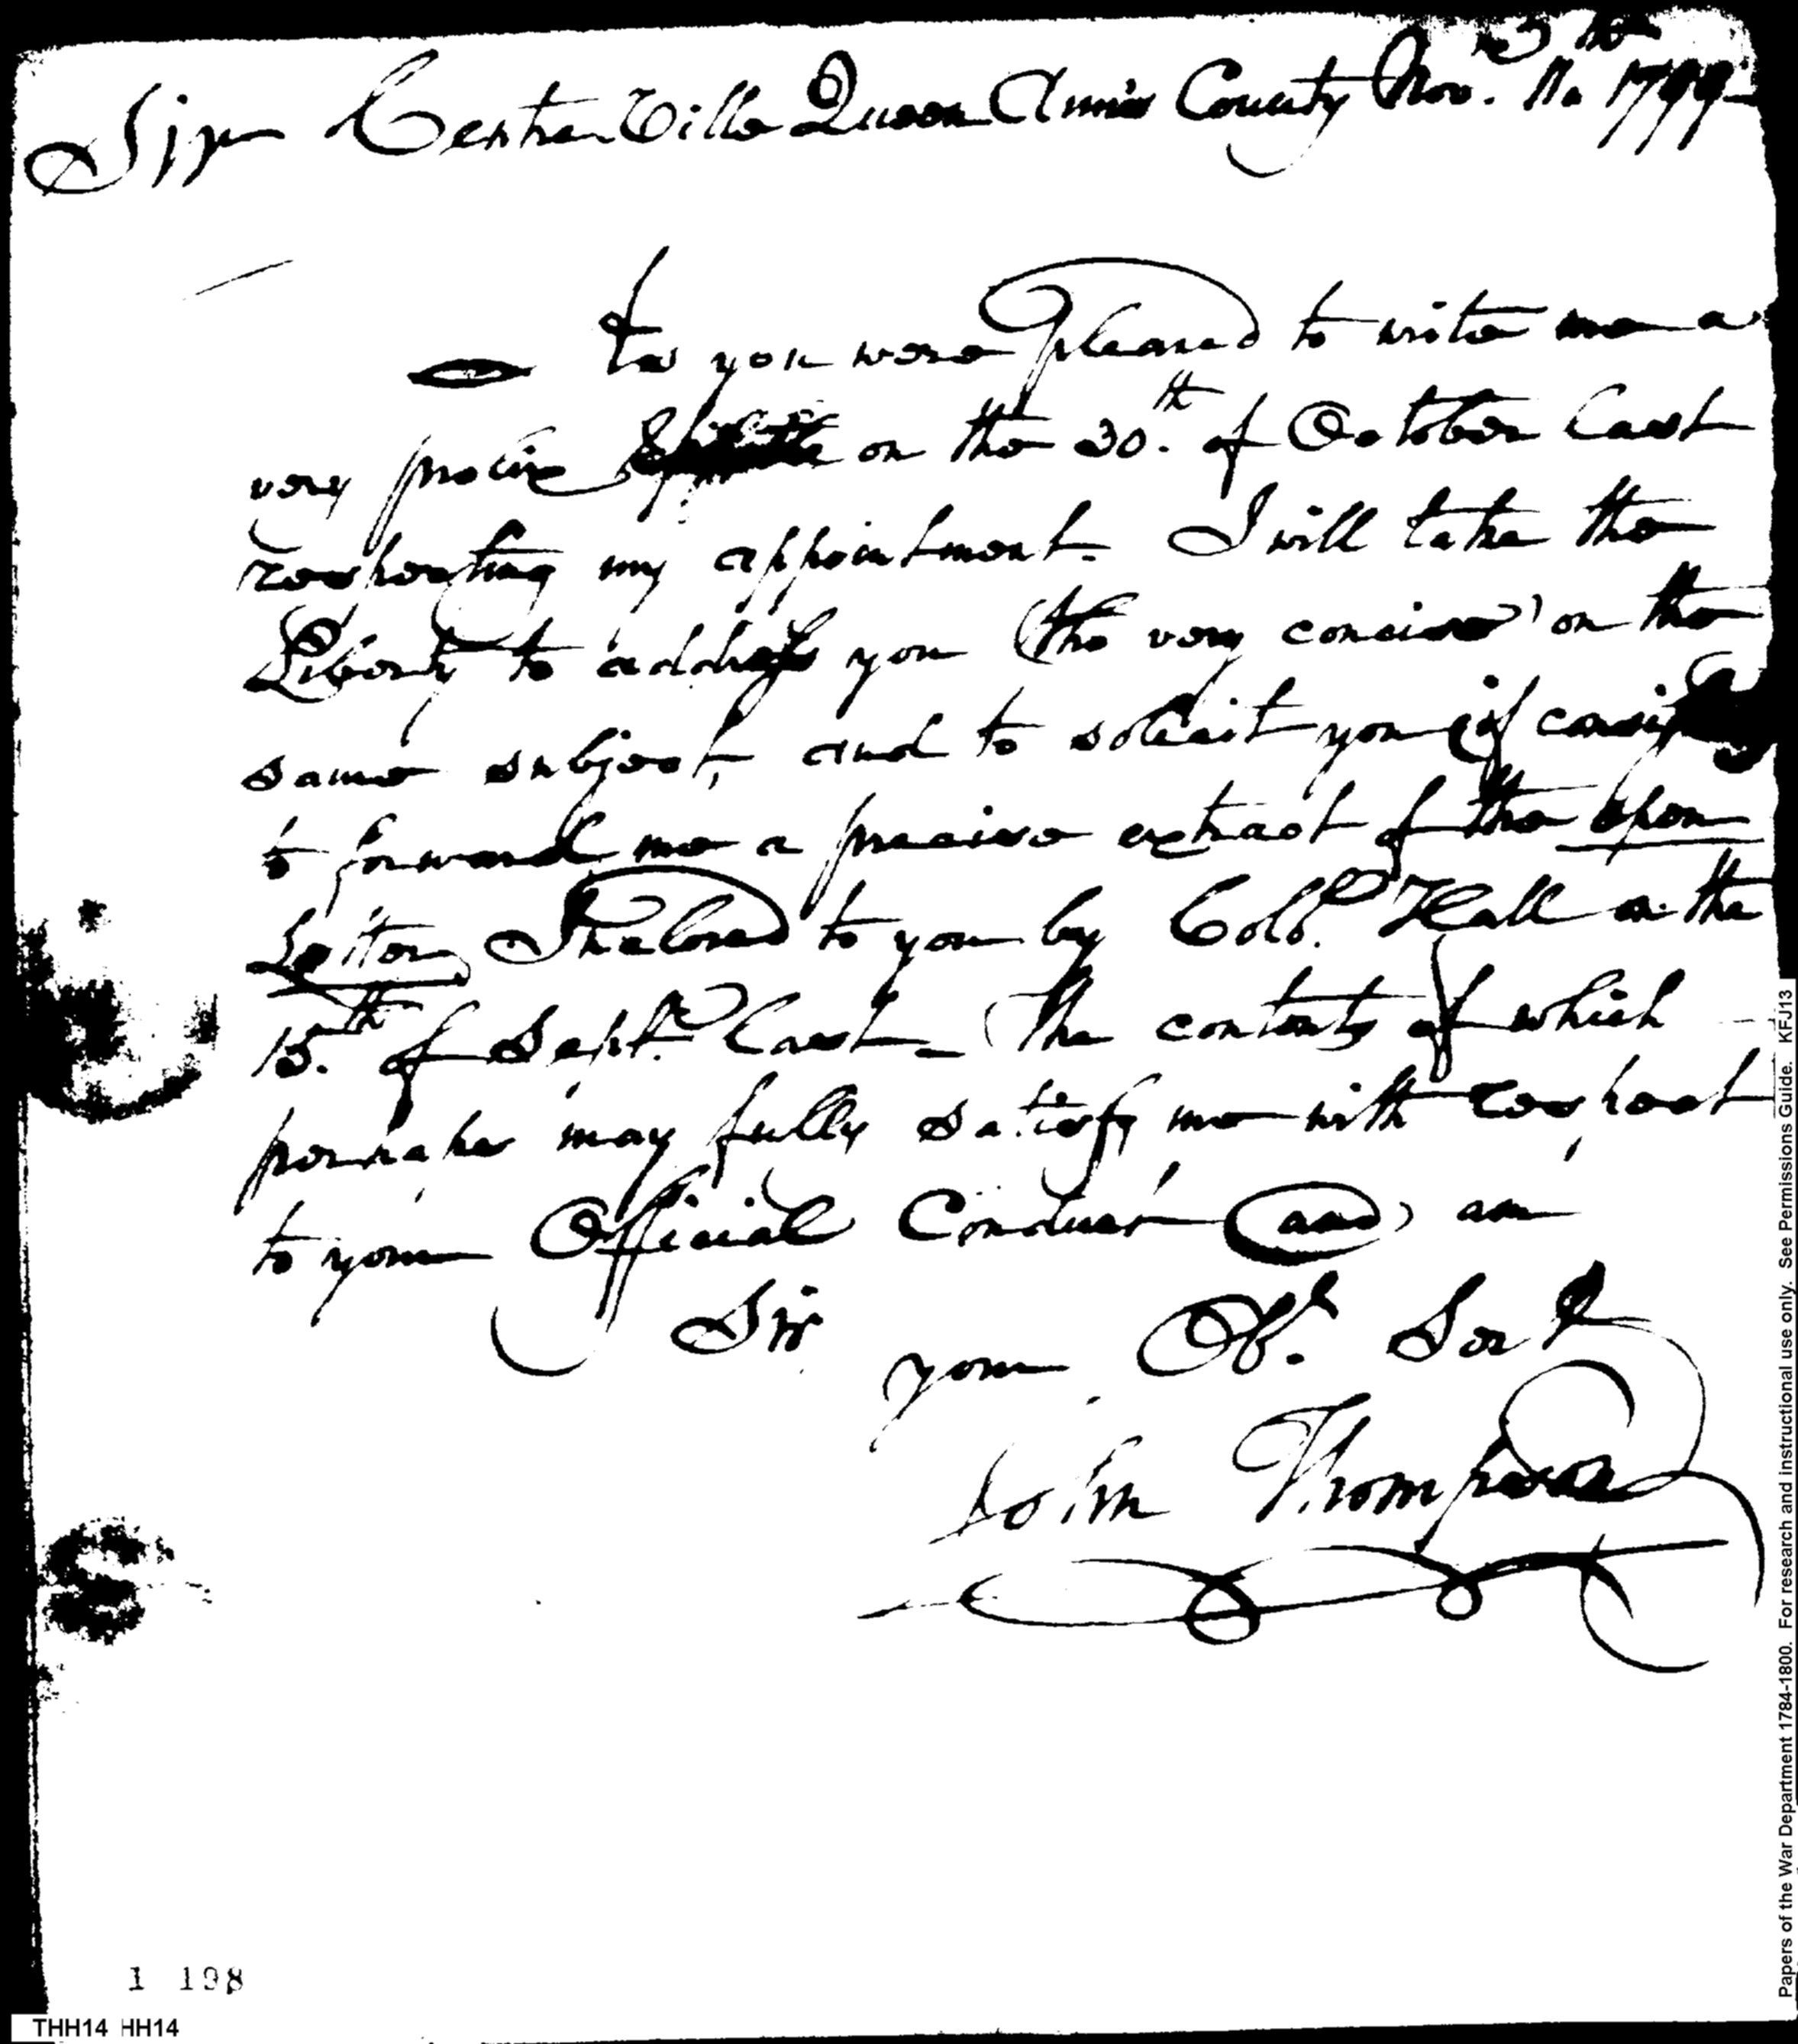 Sir Center Ville Queen Ann's County Nov.r 11th 1799
As you were pleased to write me a
very prolix on the 30.th of October last
respecting my appointment. I will take the
Liberty to address you (tho very concise) on the
same subject, and to solicit you (if
to forward me a precise extract of the open
Letter Shewed to you by Coll. Hall on the
15.th of Sept.r last - The contents of which
perhaps may fully satisfy me with respect
to your Official Conduct (and) am
Sir
your Ob.t Ser.t
John Thompson
1 198
THH14 HH14
Papers of the War Department 1784-1800. For research and instructional use only. See Permissions Guide. KFJ13